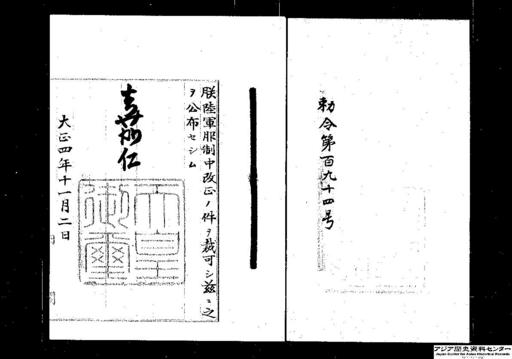 勅令第百九十四号
朕陸軍服制中改正ノ件ヲ裁可シ茲ニ之
ヲ公布セシム
嘉仁
天皇御璽
大正四年十一月二日
アジア歴史資料センター
Japan Center for Asian Historical Records